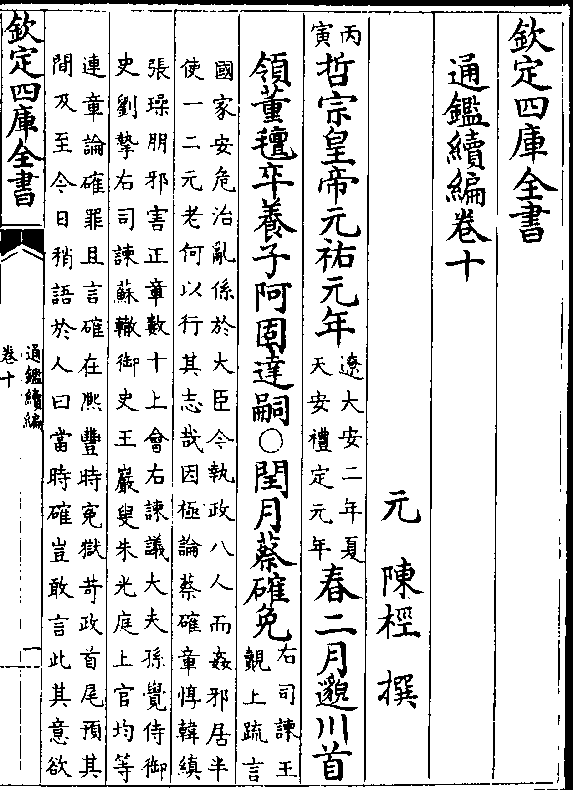 欽定四庫全書
通鑑續編卷十
元 陳桱 撰
丙
寅
哲宗皇帝元祐元年
遼大安二年夏
天安禮定元年
春二月邈川首
領董氊卒養子阿固達嗣○閏月蔡確免
右司諫王
覿上疏言
國家安危治亂係於大臣今執政八人而姦邪居半
使一二元老何以行其志哉因極論蔡確章惇韓縝
張璪朋邪害正章數十上會右諫議大夫孫覺侍御
史劉摯右司諫蘇轍御史王巖叟朱光庭上官均等
連章論確罪且言確在熈豐時寃獄苛政首尾預其
間及至今日稍語於人曰當時確豈敢言此其意欲
欽定四庫全書
通鑑續編
卷十
一